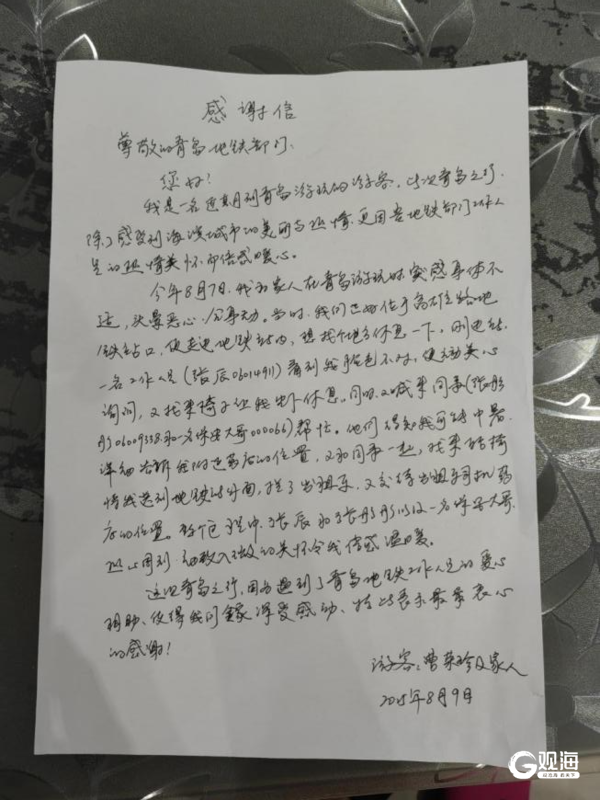 感谢信
尊敬的青岛地铁部门：
您好！
我是一名近期到青岛游玩的游客，此次青岛之行，
除了感受到海滨城市的美丽与热情，更因贵地铁部门工作人
员的热情关怀而倍感暖心。
今年8月7日，我和家人在青岛游玩时突感身体不
适，头晕恶心、分享动，当时，我们正好位于高雄路地
铁站口，便走进地铁站内，想找个地方休息一下。刚进站，
一名工作人员（张辰06014911）看到我脸色不对，便主动关心
询问，又找来椅子让我坐下休息。同时又叫来同事（张彤
彤06009358和一名保安大哥000066）帮忙。他们得知我可能中暑，
详细告诉我附近药店的位置，又和同事一起，找来轮椅
将我送到地铁站外面，拦了出租车，又交待出租车司机药
店的位置。整个过程中，张辰和张彤彤以及一名保安大哥
热心周到、细致入微的关怀令我倍感温暖。
这次青岛之行，因为遇到了青岛地铁工作人员的爱心
相助、使得我们深受感动、特此表示最最衷心
的感谢！
游客：曹荣珍及家人
2025年8月9日
G观海